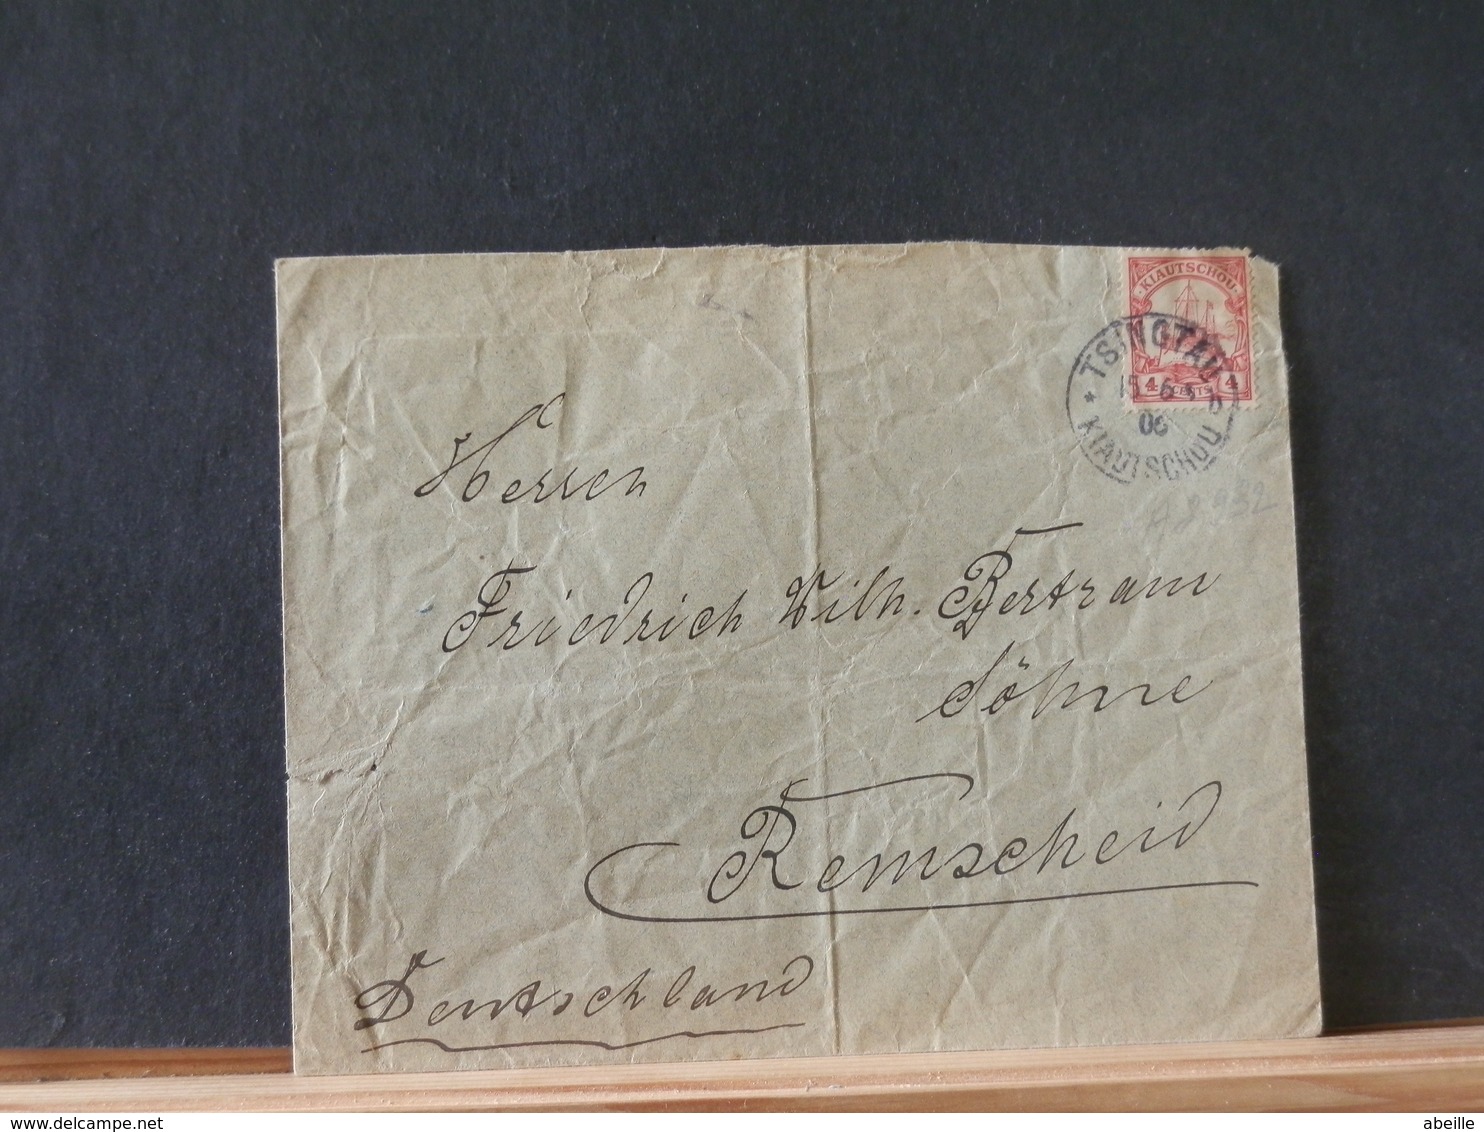 KIAUTSCHOU
4 CENTS 4
* TSINGTAU
06
KIAUTSCHOU
Herren
Friedrich Wilh. Bertram
Söhne
Remscheid
Deutschland
abeille